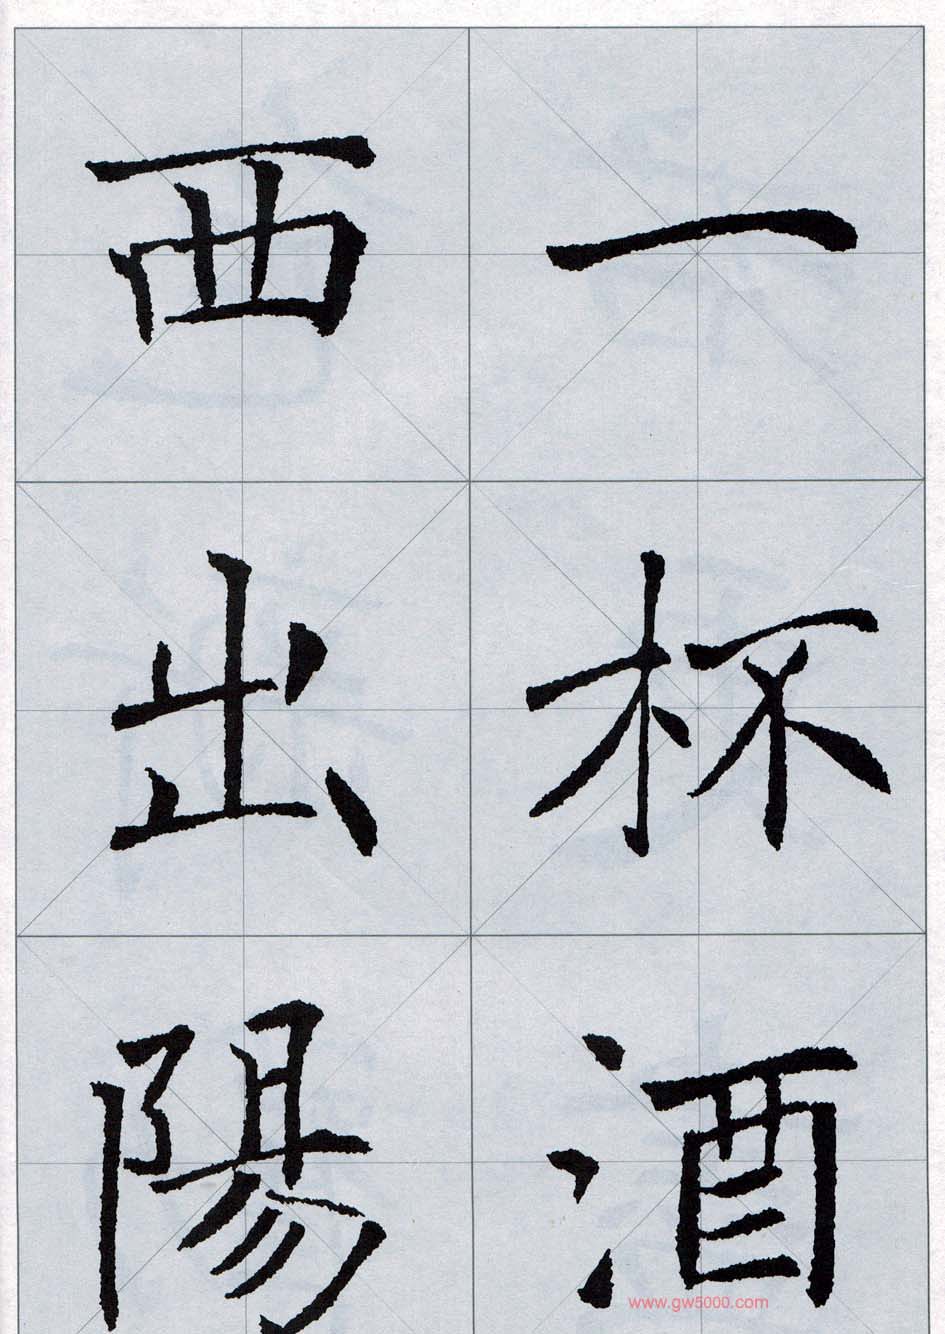 一杯酒
西出陽
www.gw5000.com